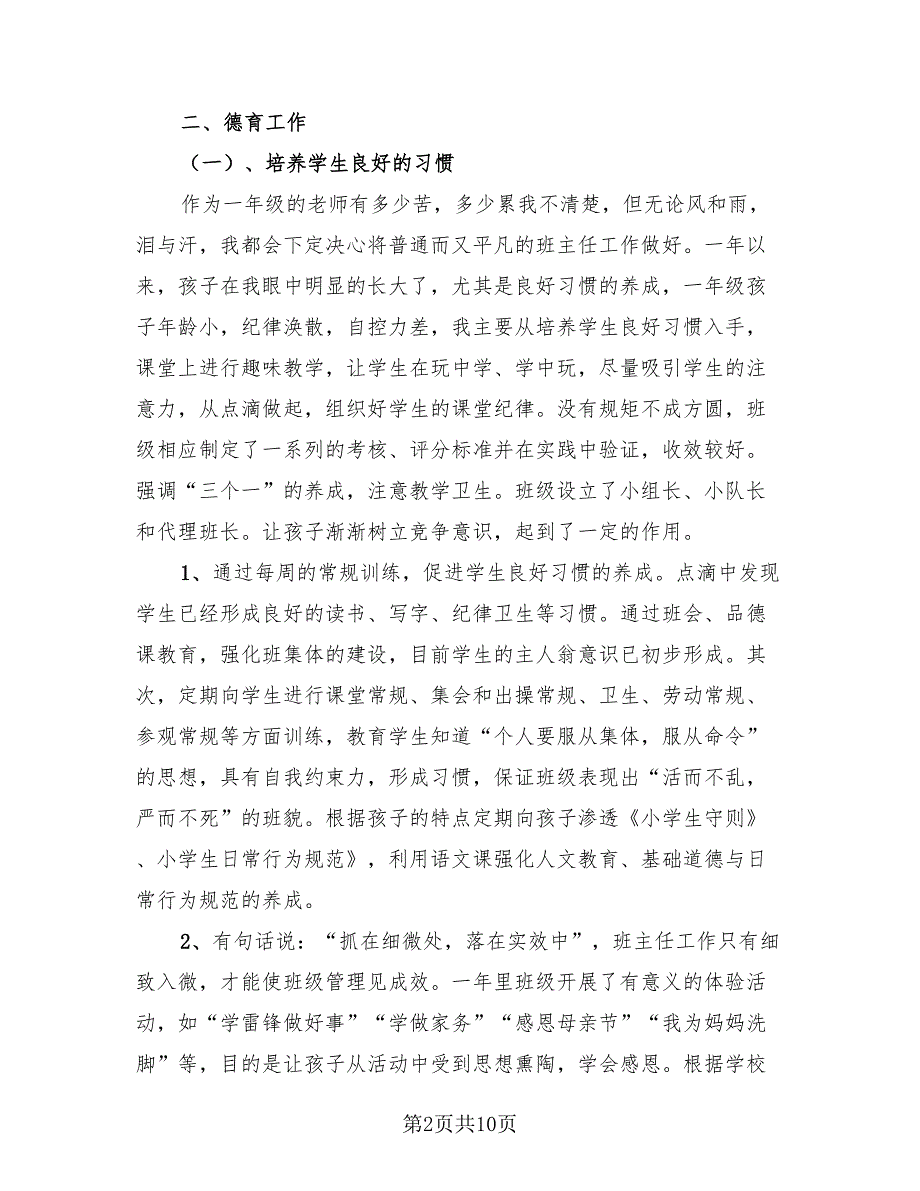 二、德育工作
（一）、培养学生良好的习惯
作为一年级的老师有多少苦，多少累我不清楚，但无论风和雨，
泪与汗，我都会下定决心将普通而又平凡的班主任工作做好。一年以
来，孩子在我眼中明显的长大了，尤其是良好习惯的养成，一年级孩
子年龄小，纪律涣散，自控力差，我主要从培养学生良好习惯入手，
课堂上进行趣味教学，让学生在玩中学、学中玩，尽量吸引学生的注
意力，从点滴做起，组织好学生的课堂纪律。没有规矩不成方圆，班
级相应制定了一系列的考核、评分标准并在实践中验证，收效较好。
强调“三个一”的养成，注意教学卫生。班级设立了小组长、小队长
和代理班长。让孩子渐渐树立竞争意识，起到了一定的作用。
1、通过每周的常规训练，促进学生良好习惯的养成。点滴中发现
学生已经形成良好的读书、写字、纪律卫生等习惯。通过班会、品德
课教育，强化班集体的建设，目前学生的主人翁意识已初步形成。其
次，定期向学生进行课堂常规、集会和出操常规、卫生、劳动常规、
参观常规等方面训练，教育学生知道“个人要服从集体，服从命令”
的思想，具有自我约束力，形成习惯，保证班级表现出“活而不乱，
严而不死”的班貌。根据孩子的特点定期向孩子渗透《小学生守则》
、小学生日常行为规范》，利用语文课强化人文教育、基础道德与日
常行为规范的养成。
2、有句话说：“抓在细微处，落在实效中”，班主任工作只有细
致入微，才能使班级管理见成效。一年里班级开展了有意义的体验活
动，如“学雷锋做好事”“学做家务”“感恩母亲节”“我为妈妈洗
脚”等，目的是让孩子从活动中受到思想熏陶，学会感恩。根据学校
第2页共10页